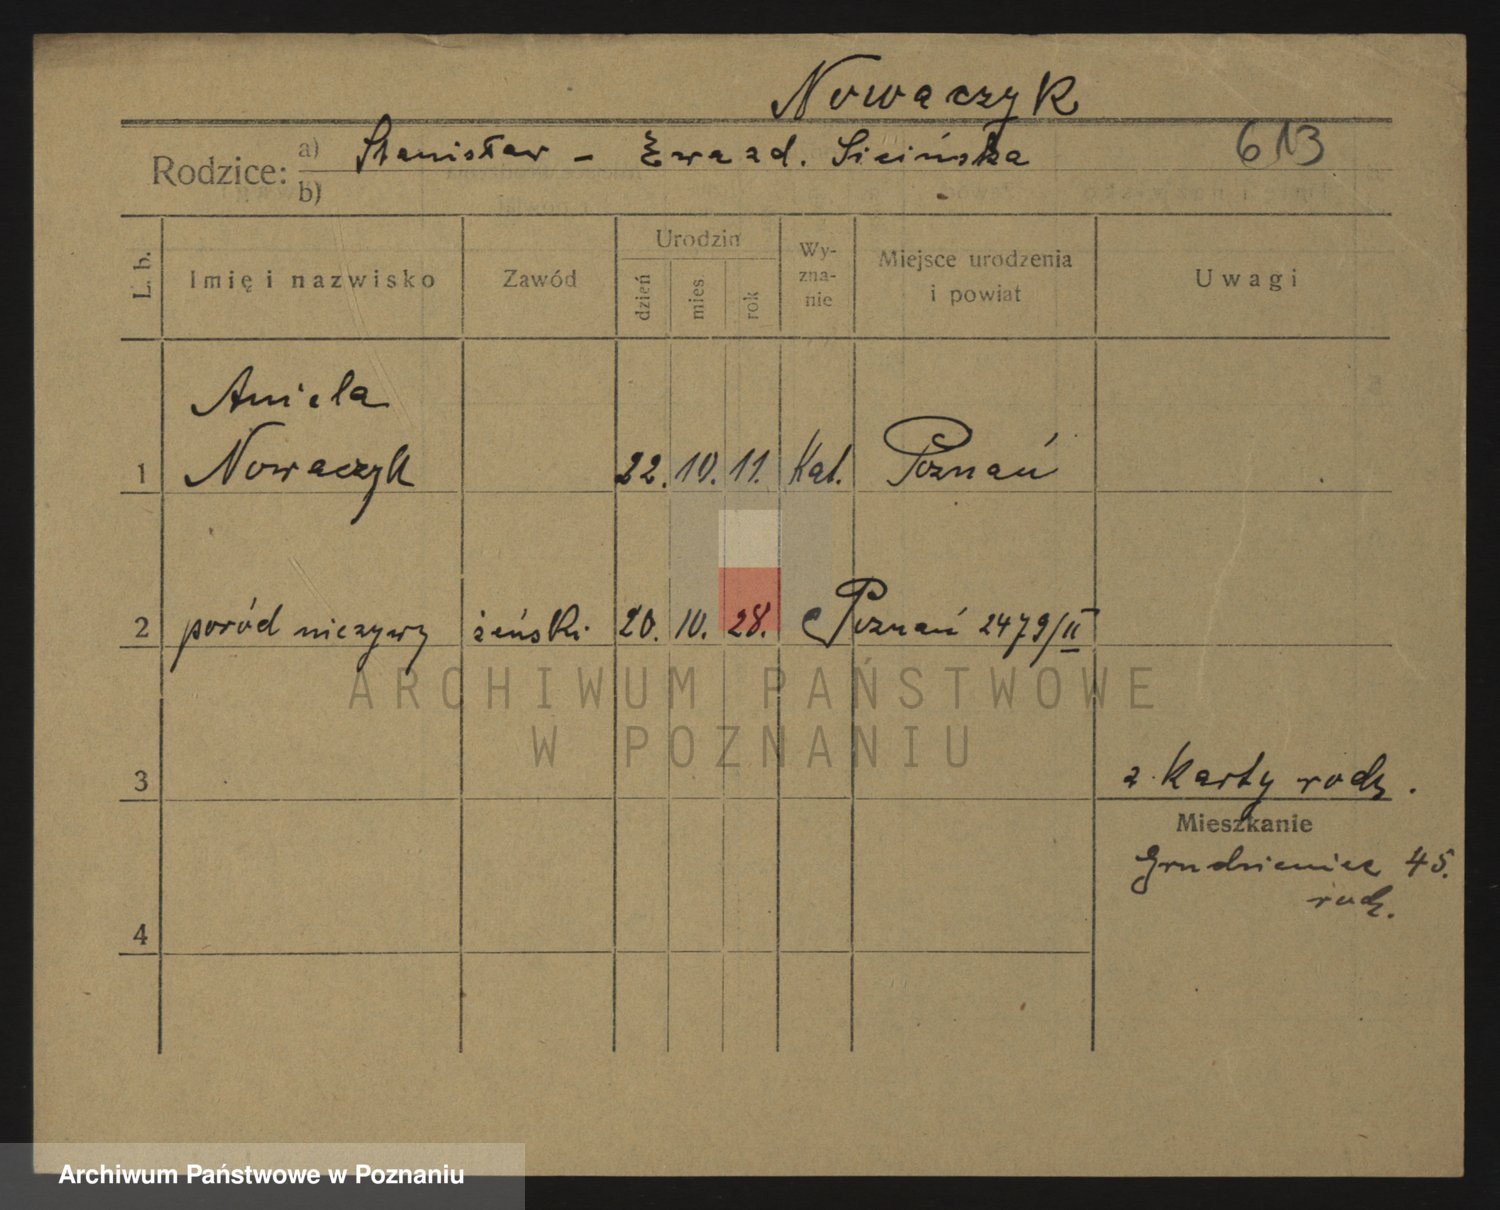 Nowaczyk
Rodzice: a) Stanisław – Ewa zd. Sicińska 613
b)
L. b. Imię i nazwisko Zawód Urodzin dzień mies rok Wy-zna-nie Miejsce urodzenia i powiat Uwagi
Aniela
1 Nowaczyk 22. 10. 11. Kat. Poznań
2 poród nieżywy żeński. 20. 10. 28. Poznań 2479/II
ARCHIWUM PAŃSTWOWE
W POZNANIU
3 z Karty rodz.
Mieszkanie
Grudzieniec 45.
rodz.
4
Archiwum Państwowe w Poznaniu